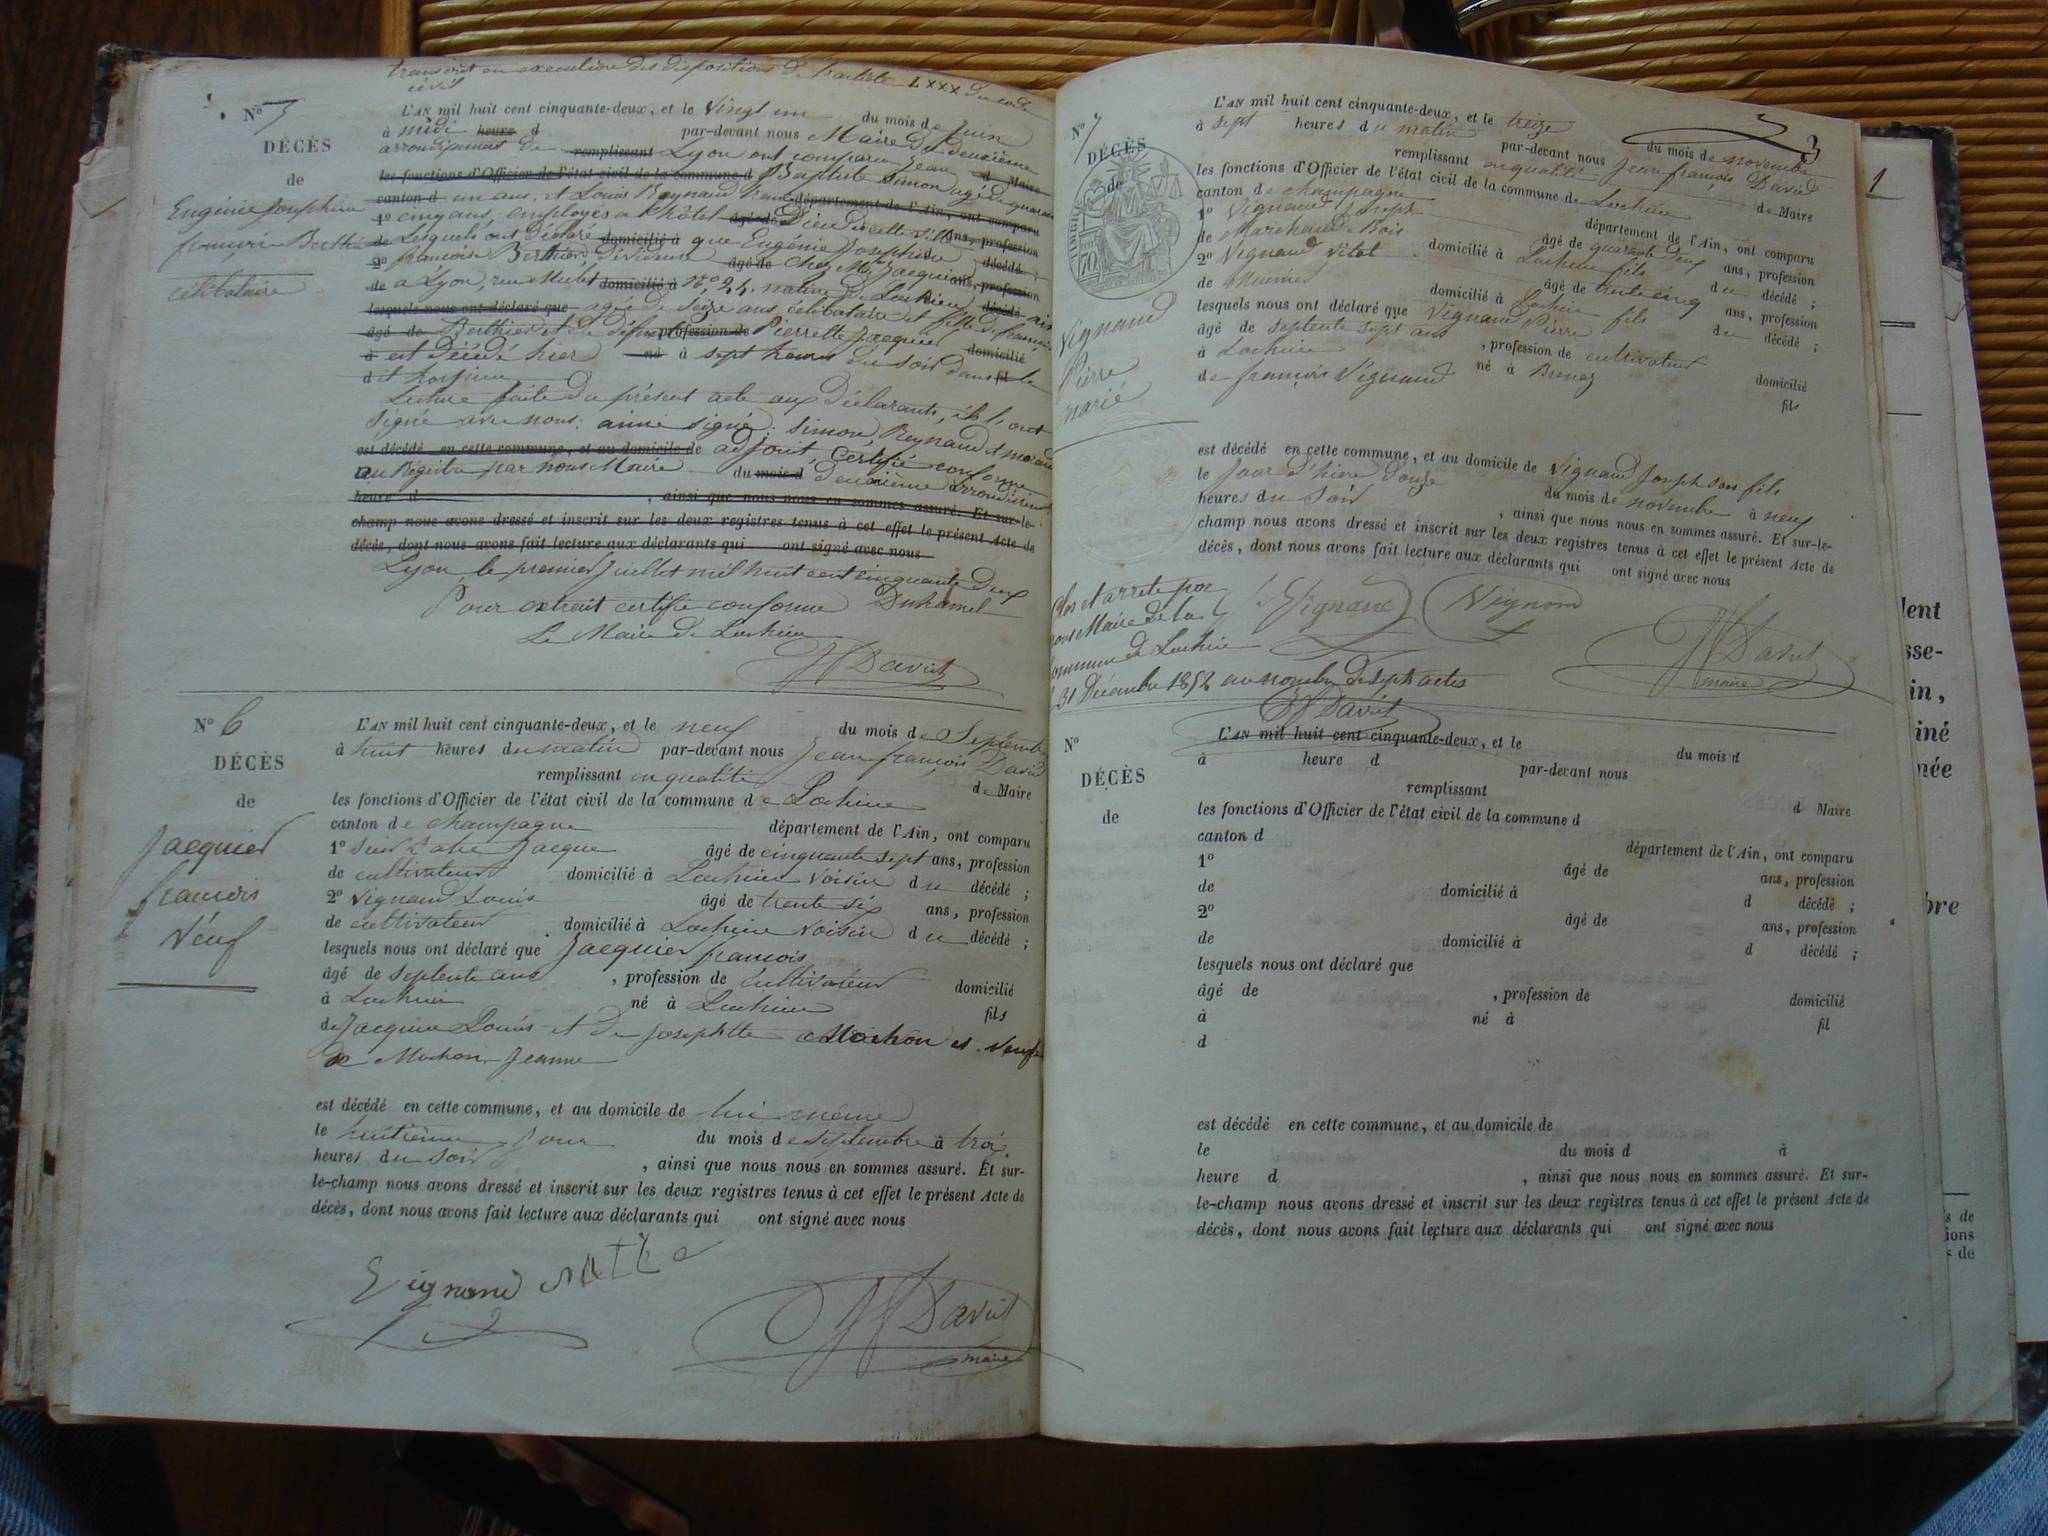 transcrit en execution des dispositions de l'article LXXX du code
civil
N° 5
DÉCÈS
de
Eugénie Josephine
françoise Berthier
célibataire
L'AN mil huit cent cinquante-deux, et le vingt un du mois de Juin
à midi heure d par-devant nous Maire du deuxième
arrondissement de remplissant Lyon ont comparu Jean d Maire
les fonctions d'Officier de l'état civil de la commune d Baptiste Simon agé de quarante
canton d un ans, et Louis Reynaud trente département de l'Ain, ont comparu
1° cinq ans, employés a l'hôtel âgé de Dieu de cette ville ans, profession
de Lesquels ont déclaré domicilié à que Eugénie Josephine décédé ;
2° françoise Berthier, dévideuse âgé de chez Mr Jacquier ans, profession
de à Lyon, rue Mulet domicilié à N° 24, native de Lochieu décédé ain
lesquels nous ont déclaré que agée de seize ans célibataire et fille de françois
âgé de Berthier et de défunte profession de Pierrette Jacquier domicilié
à est décédé hier né à sept heures du soir dans fil le
dit hospice
Lecture faite du présent acte aux déclarants, ils l'ont
signé avec nous: ainsi signé: Simon, Reynaud
est décédé en cette commune, et au domicile de adjoint, certifié conforme
au Régistre par nous Maire du mois d deuxième arrondissement
heure d , ainsi que nous nous en sommes assuré. Et sur-le-
champ nous avons dressé et inscrit sur les deux registres tenus à cet effet le présent Acte de
décès, dont nous avons fait lecture aux déclarants qui ont signé avec nous
Lyon, le premier Juillet mil huit cent cinquante deux
Pour extrait certifié conforme Duhamel
Le Maire de Lochieu
JF David
N° 6
DÉCÈS
de
Jacquier
francois
Veuf
L'AN mil huit cent cinquante-deux, et le neuf du mois de Septembre
à huit heures du matin par-devant nous Jean françois David
remplissant en qualité de Maire
les fonctions d'Officier de l'état civil de la commune de Lochieu
canton de champagne département de l'Ain, ont comparu
1° Jacque âgé de cinquante sept ans, profession
de cultivateur domicilié à Lochieu voisin du décédé ;
2° Vignand Louis âgé de trente si ans, profession
de cultivateur domicilié à Lochieu voisin du décédé ;
lesquels nous ont déclaré que Jacquier francois
âgé de septente ans , profession de cultivateur domicilié
à Lochieu né à Lochieu fils
de Jacquier Louis et de Josephtte Mochon et veuf
de Mochon Jeanne
est décédé en cette commune, et au domicile de lui même
le huitième jour du mois de septembre à trois
heures du soir , ainsi que nous nous en sommes assuré. Et sur-
le-champ nous avons dressé et inscrit sur les deux registres tenus à cet effet le présent Acte de
décès, dont nous avons fait lecture aux déclarants qui ont signé avec nous
Vignand
JF David
maire
3
N° 7
DÉCÈS
de
TIMBRE
70
Vignand
Pierre
marié
L'AN mil huit cent cinquante-deux, et le treize du mois de novembre
à sept heures du matin par-devant nous Jean françois David
remplissant en qualité de Maire
les fonctions d'Officier de l'état civil de la commune de Lochieu
canton de champagne département de l'Ain, ont comparu
1° Vignand Joseph âgé de quarante deux ans, profession
de Marchand Bois domicilié à Lochieu fils du décédé ;
2° Vignand Vital âgé de trente cinq ans, profession
de Meunier domicilié à Lochieu fils du décédé ;
lesquels nous ont déclaré que Vignand Pierre
âgé de septente sept ans , profession de cultivateur domicilié
à Lochieu né à Brenaz fils
de françois Vignand
est décédé en cette commune, et au domicile de Vignand Joseph son fils
le jour d'hiere douze du mois de novembre à neuf
heures du soir , ainsi que nous nous en sommes assuré. Et sur-le-
champ nous avons dressé et inscrit sur les deux registres tenus à cet effet le présent Acte de
décès, dont nous avons fait lecture aux déclarants qui ont signé avec nous
Vignand Vignand
JF David
maire
Clos et arrêté par
nous Maire de la
commune de Lochieu
31 Décembre 1852 au nombre de sept actes
JF David
N°
DÉCÈS
de
L'AN mil huit cent cinquante-deux, et le du mois d
à heure d par-devant nous
remplissant d Maire
les fonctions d'Officier de l'état civil de la commune d
canton d département de l'Ain, ont comparu
1° âgé de ans, profession
de domicilié à d décédé ;
2° âgé de ans, profession
de domicilié à d décédé ;
lesquels nous ont déclaré que
âgé de , profession de domicilié
à né à fil
d
est décédé en cette commune, et au domicile de
le du mois d à
heure d , ainsi que nous nous en sommes assuré. Et sur-
le-champ nous avons dressé et inscrit sur les deux registres tenus à cet effet le présent Acte de
décès, dont nous avons fait lecture aux déclarants qui ont signé avec nous
1